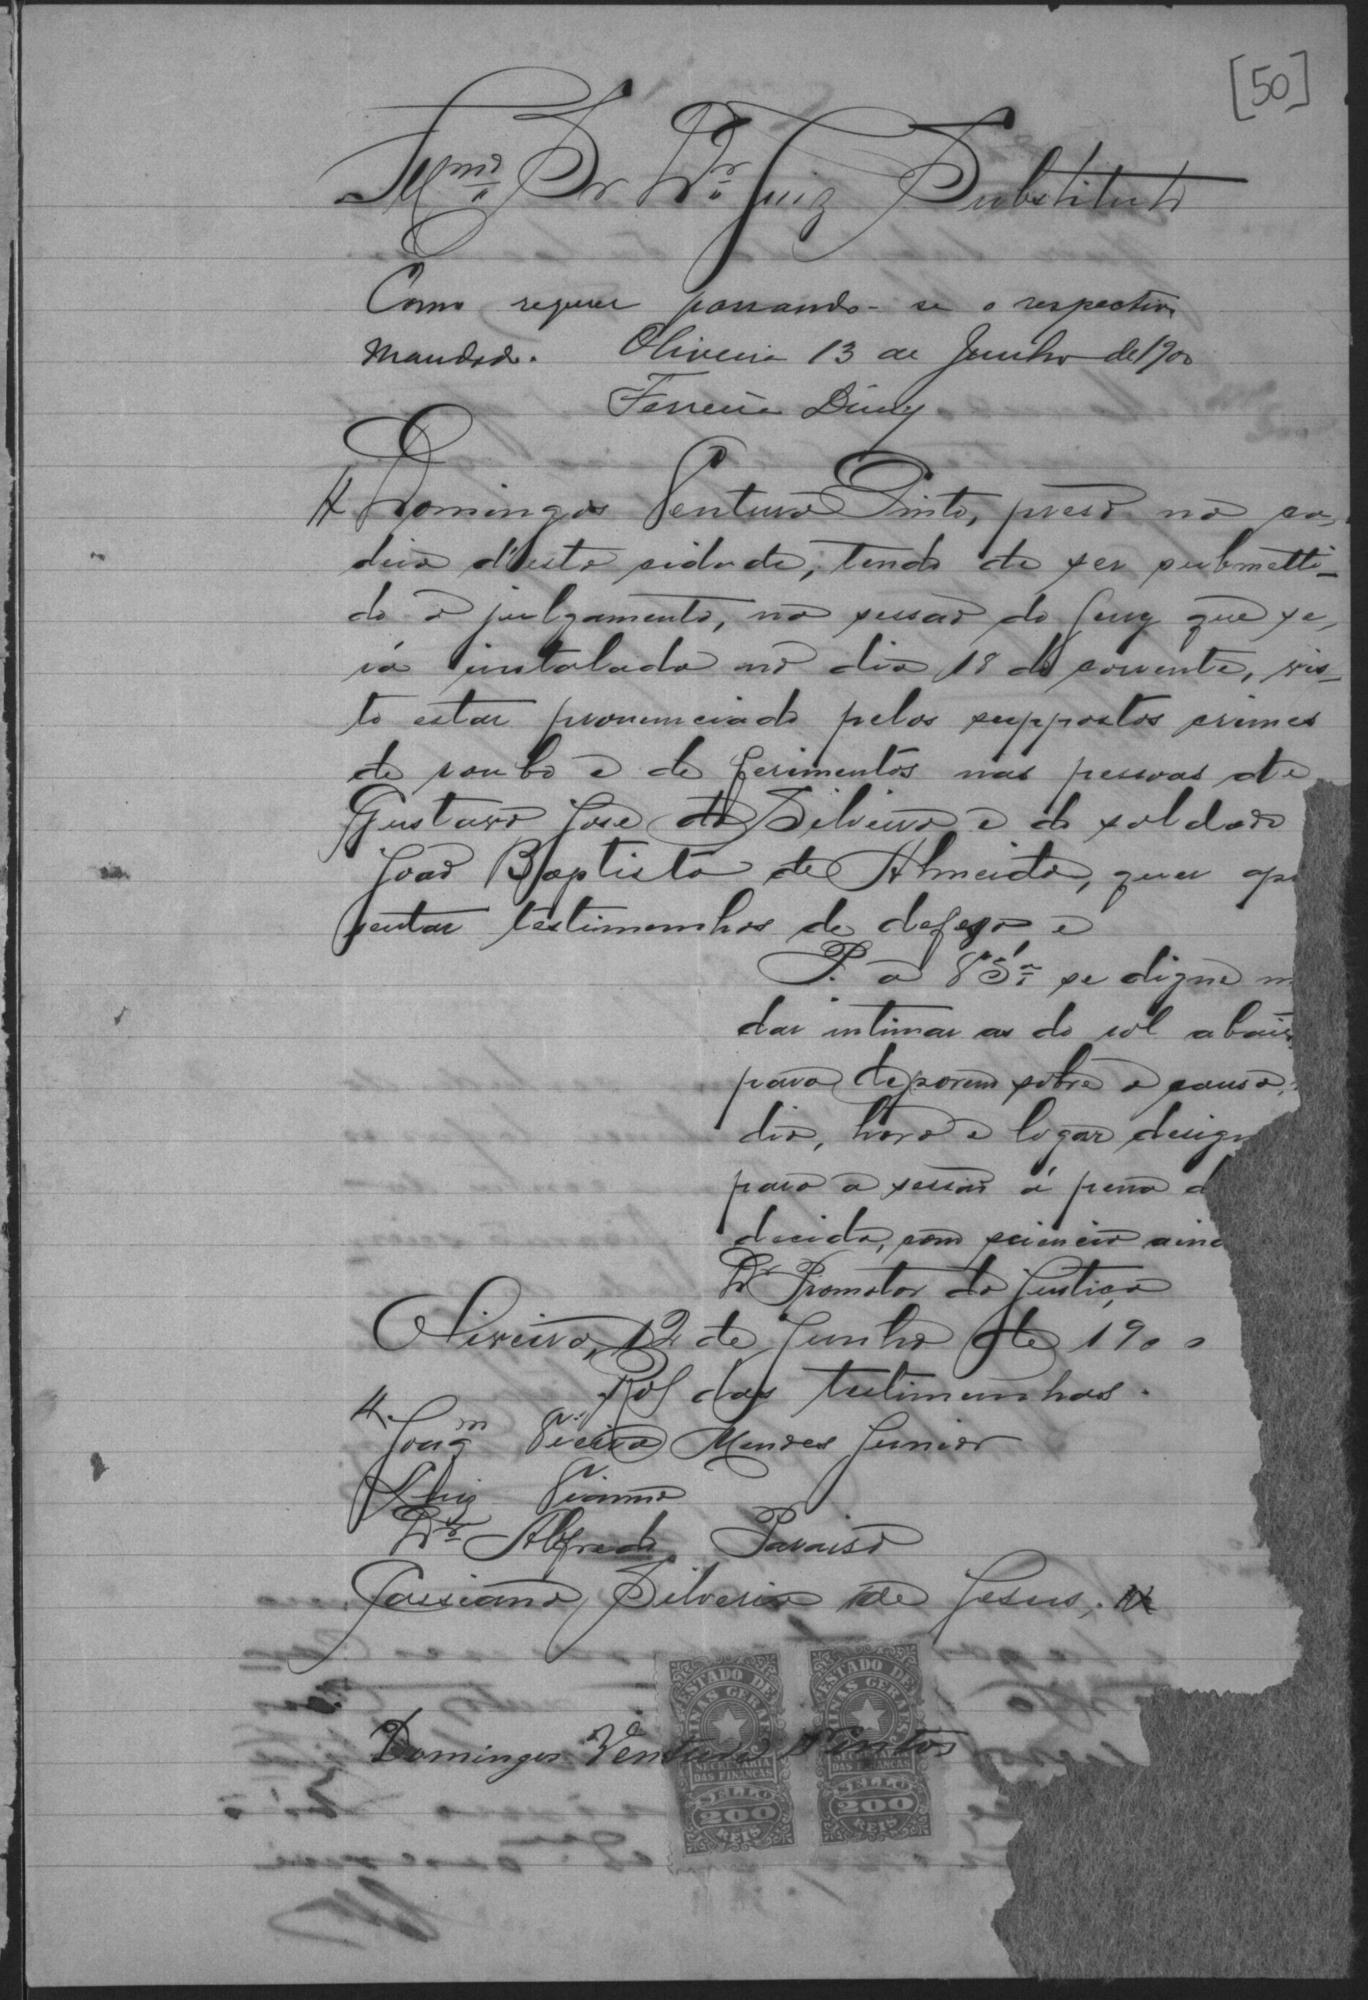 [50]
Illmo Sr Dr Juiz Substituto
Como requer passando-se o respectivo
mandado. Oliveira 13 de Junho de 1900
Ferreira Diniz
Domingos Ventura Pinto, preso na ca-
deia d'esta cidade, tendo de ser submetti-
do a julgamento, na sessão do Jury que se-
rá installada no dia 18 do corrente, vis-
to estar pronunciado pelos suppostos crimes
de roubo e de ferimentos nas pessoas de
Gustavo José da Silveira e do soldado
João Baptista de Almeida, quer apr
sentar testimunhas de defesa e
P. a V Sª se digne m
dar intimar as do rol abaix
para deporem sobre a causa,
dia, hora e logar design
para a sessão á pena d
decida, com sciencia aind
Dr Promotor da Justiça
Oliveira, 12 de Junho de 1900
Rol das testimunhas.
Joaqm Vieira Mendes Junior
Luiz Vianna
Dr Alfredo Paraiso
Cassiano Silverio de Jesus.
ESTADO DE MINAS GERAES
SECRETARIA DAS FINANCAS
SELLO
200
REIS
ESTADO DE MINAS GERAES
SECRETARIA DAS FINANCAS
SELLO
200
REIS
Domingos Ventura Pintos